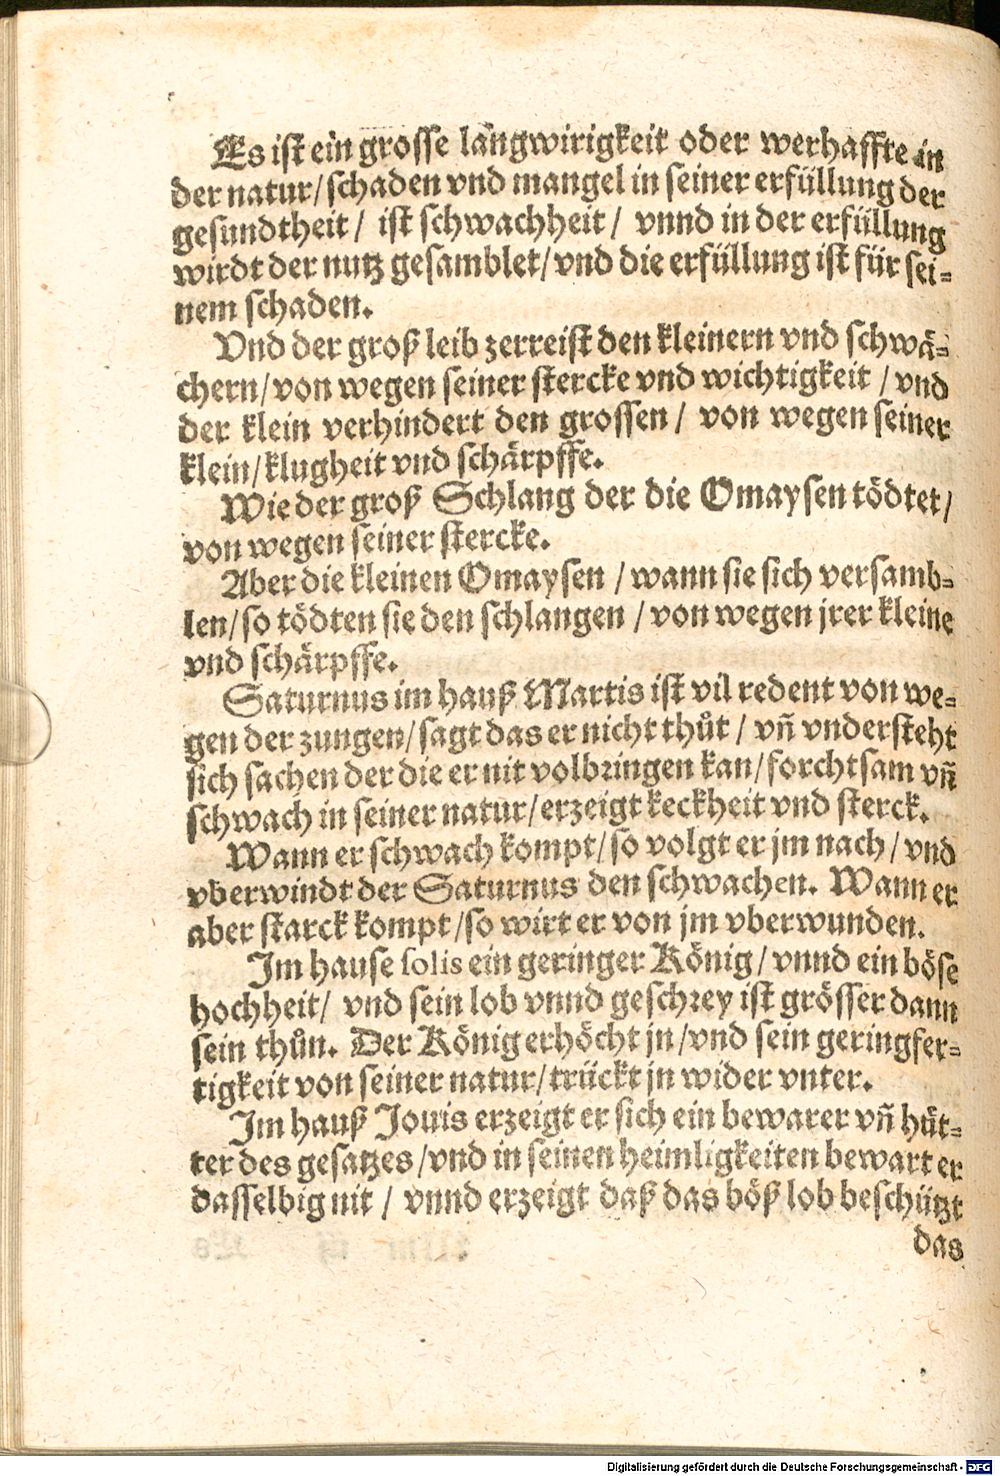 Es ist ein grosse langwirigkeit oder werhaffte in
der natur/schaden vnd mangel in seiner erfüllung der
gesundtheit/ ist schwachheit/ vnnd in der erfüllung
wirdt der nutz gesamblet/vnd die erfüllung ist für sei-
nem schaden.
Vnd der groß leib zerreist den kleinern vnd schwä-
chern/von wegen seiner stercke vnd wichtigkeit /vnd
der klein verhindert den grossen/ von wegen seiner
klein/klugheit vnd schärpffe.
Wie der groß Schlang der die Omaysen tödtet/
von wegen seiner stercke.
Aber die kleinen Omaysen /wann sie sich versamb-
len/so tödten sie den schlangen /von wegen jrer kleine
vnd schärpffe.
Saturnus im hauß Martis ist vil redent von we-
gen der zungen/sagt das er nicht thůt/ vñ vndersteht
sich sachen der die er nit volbringen kan/forchtsam vñ
schwach in seiner natur/erzeigt keckheit vnd sterck.
Wann er schwach kompt/so volgt er jm nach/vnd
vberwindt der Saturnus den schwachen. Wann er
aber starck kompt/so wirt er von jm vberwunden.
Im hause solis ein geringer König/vnnd ein böse
hochheit/ vnd sein lob vnnd geschrey ist grösser dann
sein thůn. Der König erhöcht jn/vnd sein geringfer-
tigkeit von seiner natur/trückt jn wider vnter.
Im hauß Jouis erzeigt er sich ein bewarer vñ hüt-
ter des gesatzes/vnd in seinen heimligkeiten bewart er
dasselbig nit/ vnnd erzeigt daß das böß lob beschützt
das
Digitalisierung gefördert durch die Deutsche Forschungsgemeinschaft - DFG